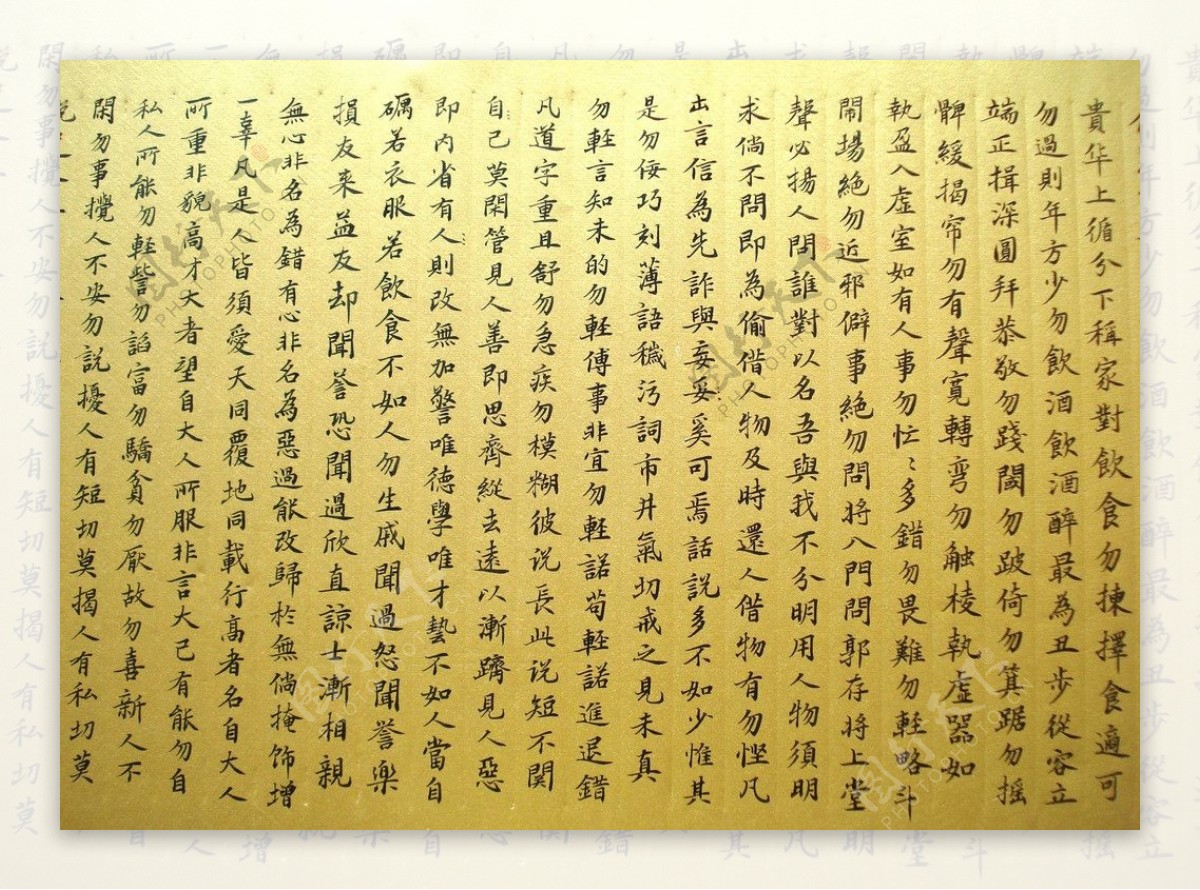 貴华上循分下稱家對飲食勿揀擇食適可
勿過則年方少勿飲酒飲酒醉最為丑步從容立
端正揖深圓拜恭敬勿踐閾勿跛倚勿箕踞勿摇
髀緩揭帘勿有聲寬轉弯勿触棱執虚器如
執盈入虚室如有人事勿忙忙多錯勿畏難勿輕略斗
鬧場絕勿近邪僻事絕勿問將入門問郭存將上堂
聲必揚人問誰對以名吾與我不分明用人物須明
求倘不問即為偷借人物及時還人借物有勿慳凡
出言信為先詐與妄奚可焉話説多不如少惟其
是勿佞巧刻薄語穢污詞市井氣切戒之見未真
勿輕言知未的勿輕傳事非宜勿輕諾苟輕諾進退錯
凡道字重且舒勿急疾勿模糊彼说長此说短不関
自己莫閑管見人善即思齊縱去遠以漸躋見人惡
即内省有人則改無加警唯德學唯才藝不如人當自
礪若衣服若飲食不如人勿生戚聞過怒聞譽樂
損友来益友却聞誉恐聞過欣直諒士漸相親
無心非名為錯有心非名為惡過能改歸於無倘掩飾增
一辜凡是人皆須愛天同覆地同載行高者名自大人
所重非貌高才大者望自大人所服非言大己有能勿自
私人所能勿輕訾勿諂富勿驕貧勿厭故勿喜新人不
閑勿事攪人不安勿説擾人有短切莫揭人有私切莫
图行天下
PHOTOPHOTO.CN